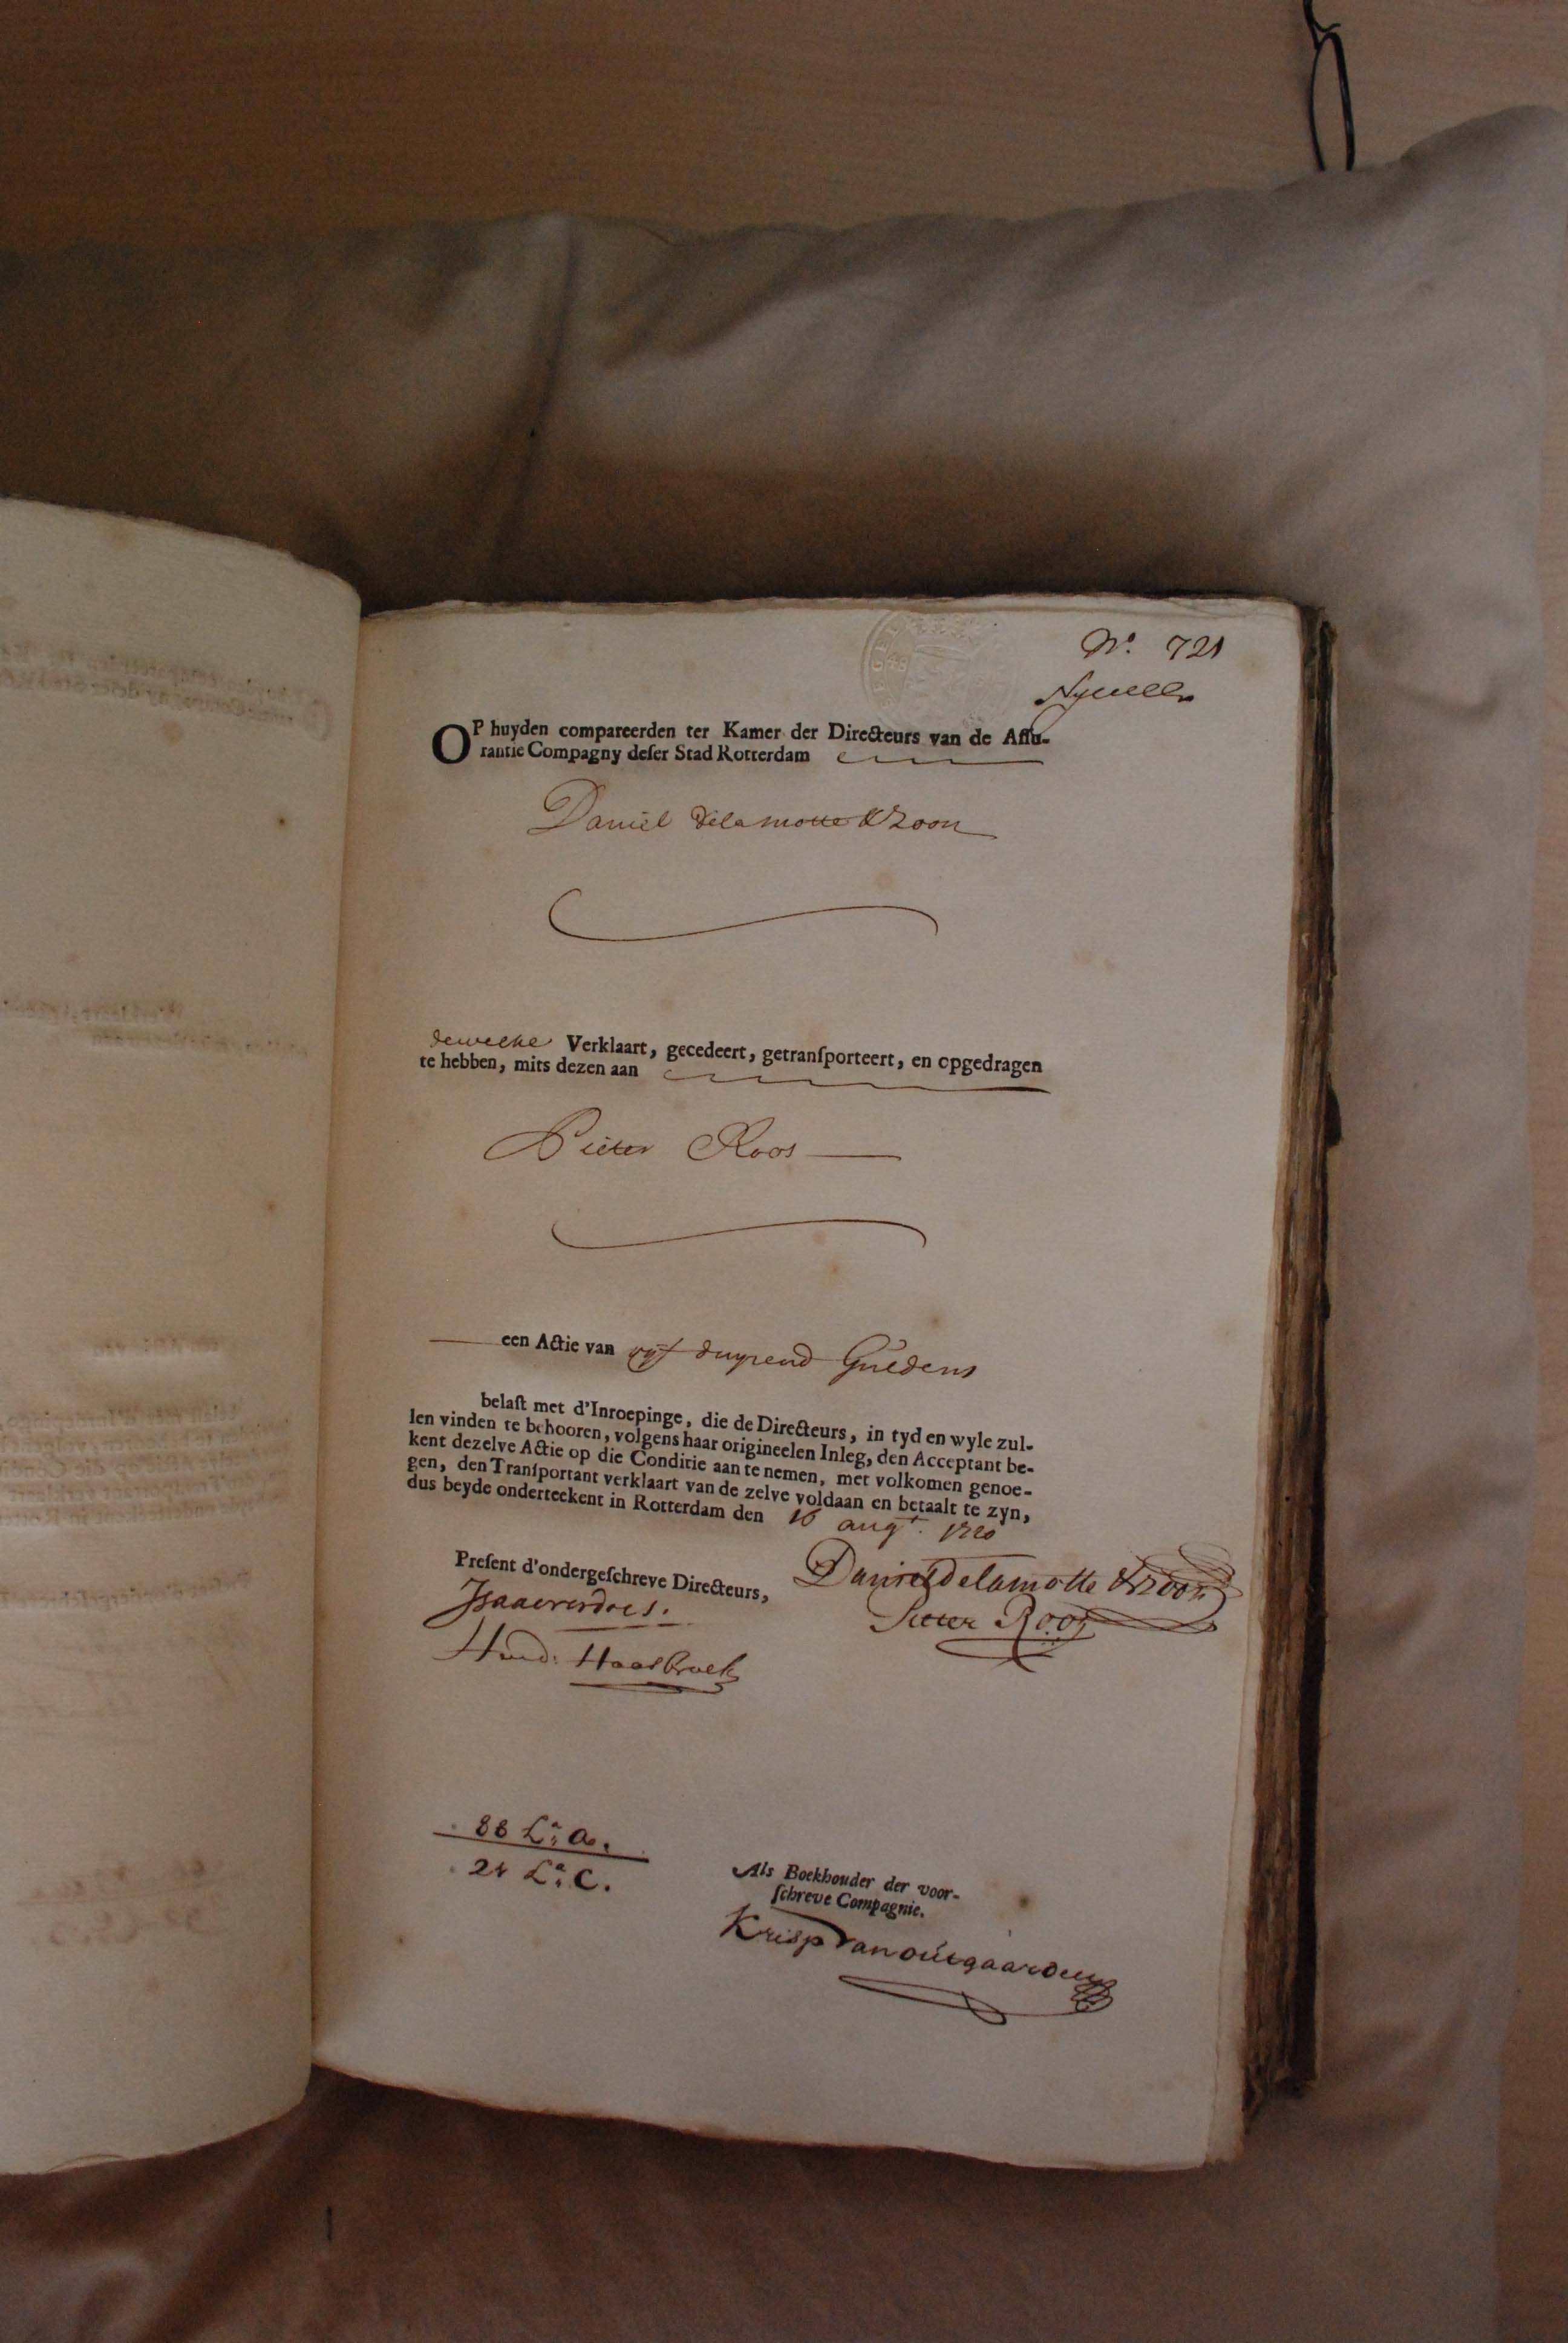 No. 721
OP huyden compareerden ter Kamer der Directeurs van de Assu-
rantie Compagny deser Stad Rotterdam
Daniel Delamotte & Zoon
dewelke Verklaart, gecedeert, getransporteert, en opgedragen
te hebben, mits dezen aan
Pieter Roos
een Actie van vyf duysend Guldens
belast met d'Inroepinge, die de Directeurs, in tyd en wyle zul-
len vinden te behooren, volgens haar origineelen Inleg, den Acceptant be-
kent dezelve Actie op die Conditie aan te nemen, met volkomen genoe-
gen, den Transportant verklaart van de zelve voldaan en betaalt te zyn,
dus beyde onderteekent in Rotterdam den 16 augt. 1720
Present d'ondergeschreve Directeurs,
Daniel Delamotte & Zoon
Isaac verdoes.
Pieter Roos
Haasbroek
88 La. A.
24 La. C.
Als Boekhouder der voor-
schreve Compagnie.
Krisp Van outgaarden